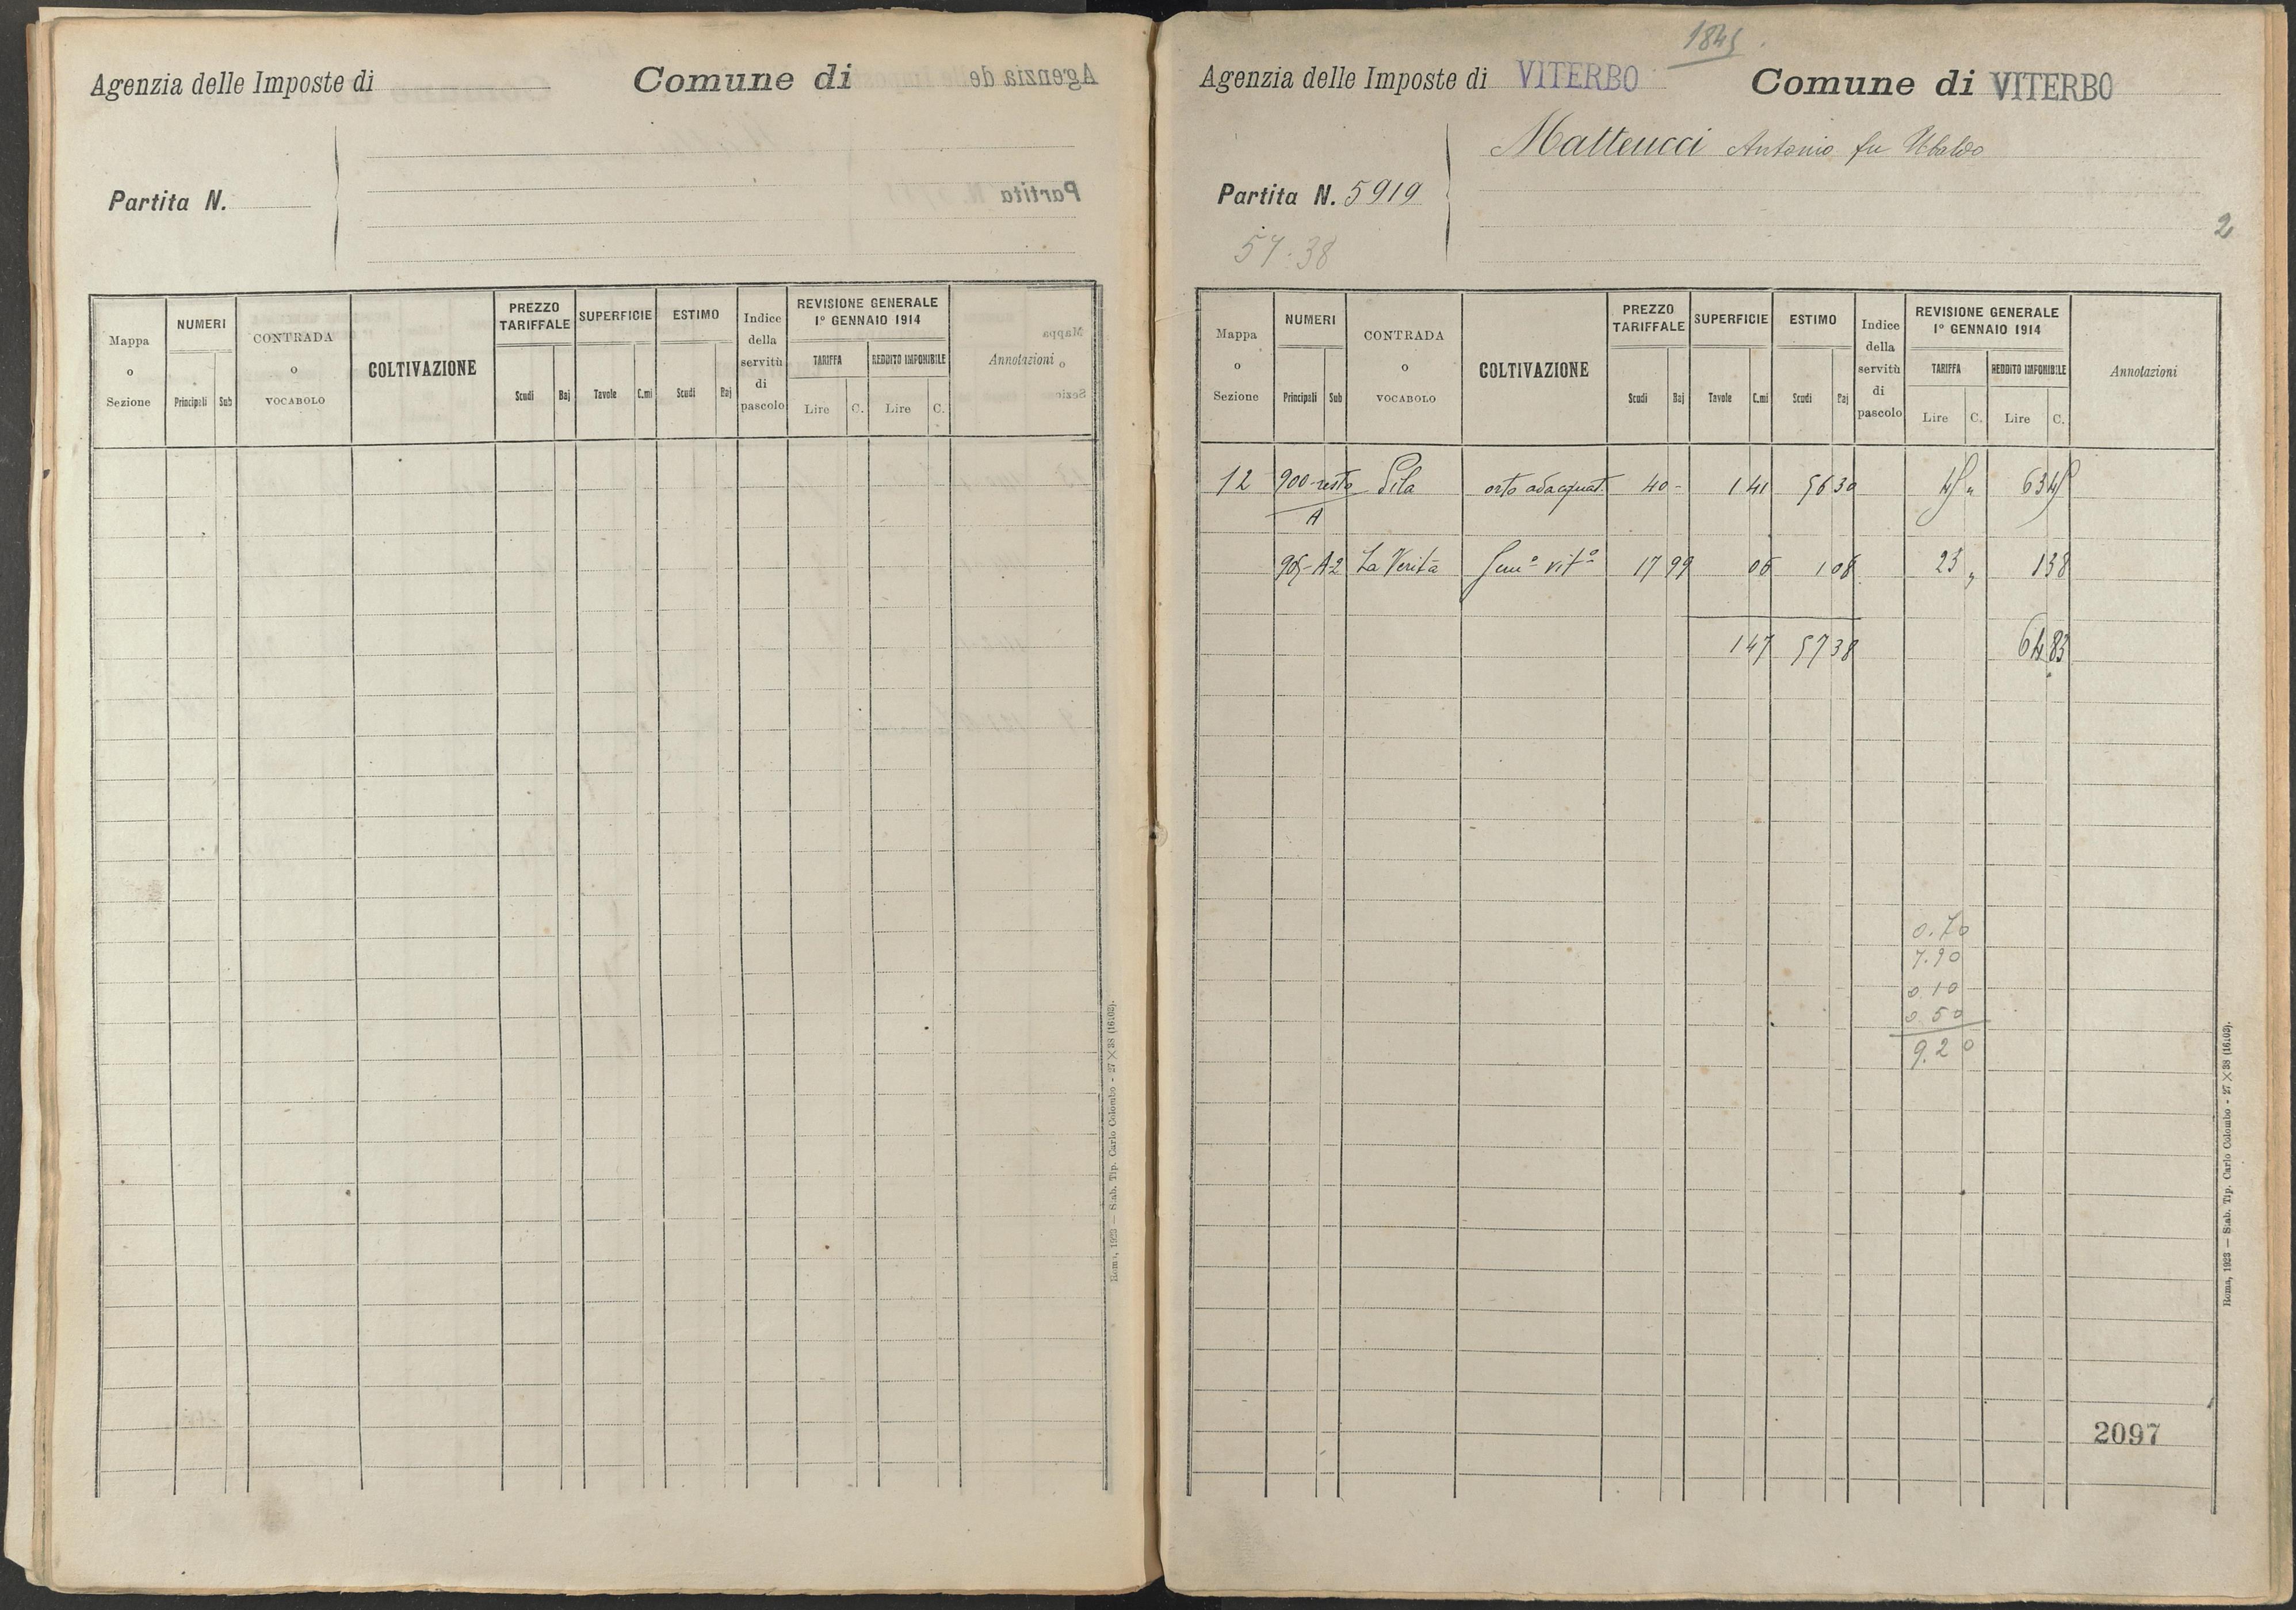 Agenzia delle Imposte di
Comune di
Partita N.
Mappa o Sezione
NUMERI
Principali Sub
CONTRADA o VOCABOLO
COLTIVAZIONE
PREZZO TARIFFALE
Scudi Baj
SUPERFICIE
Tavole C.mi
ESTIMO
Scudi Baj
Indice della servitù di pascolo
REVISIONE GENERALE 1º GENNAIO 1914
TARIFFA REDDITO IMPONIBILE
Lire C. Lire C.
Annotazioni
Roma, 1923 — Stab. Tip. Carlo Colombo - 27×38 (16103).
1845
Agenzia delle Imposte di VITERBO
Comune di VITERBO
Matteucci Antonio fu Ubaldo
Partita N. 5919
57.38
2
Mappa o Sezione
NUMERI
Principali Sub
CONTRADA o VOCABOLO
COLTIVAZIONE
PREZZO TARIFFALE
Scudi Baj
SUPERFICIE
Tavole C.mi
ESTIMO
Scudi Baj
Indice della servitù di pascolo
REVISIONE GENERALE 1º GENNAIO 1914
TARIFFA REDDITO IMPONIBILE
Lire C. Lire C.
Annotazioni
12 900-resto Pila orto adacquat. 40 - 1 41 56 30 45 „ 63 45
A
905-A-2 La Verità Sem.º vit.º 17 99 06 1 08 23 „ 1 38
1 47 57 38 64 83
0.70
7.90
0 10
0 50
9.20
2097
Roma, 1923 — Stab. Tip. Carlo Colombo - 27×38 (16103).